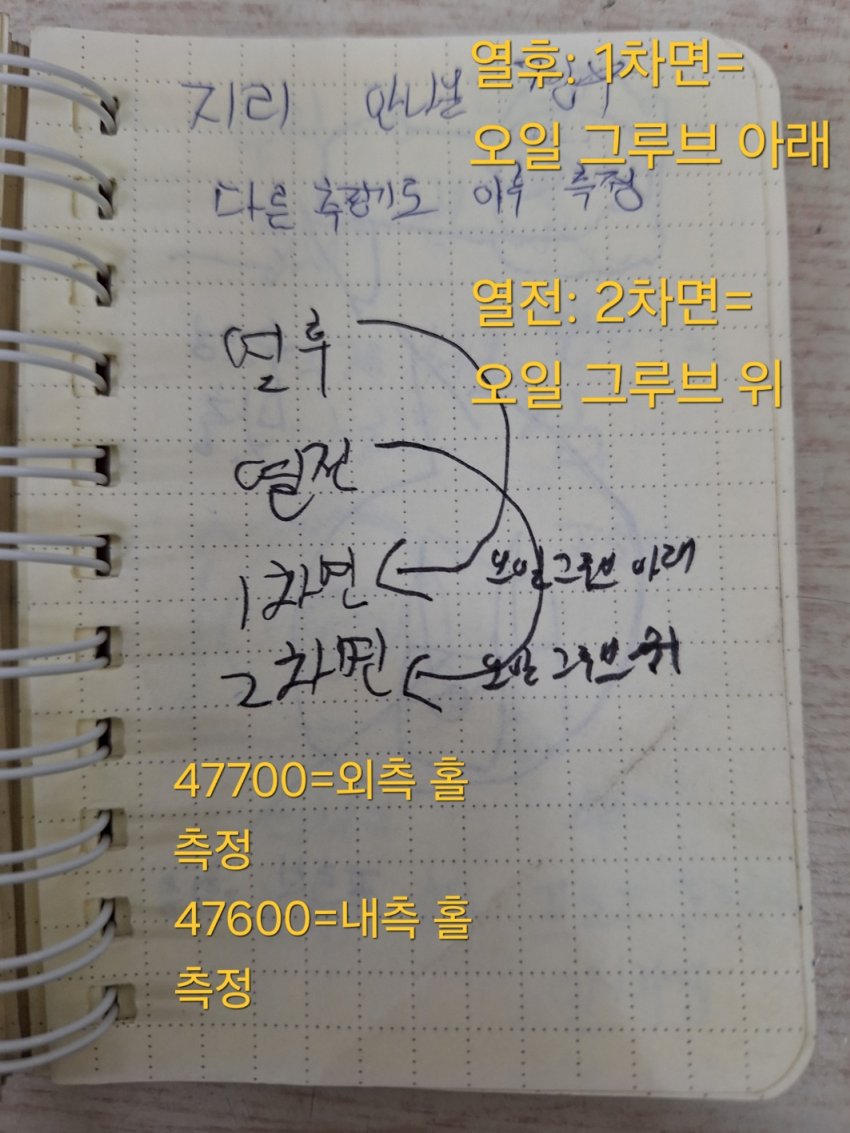 열후: 1차면=
오일 그루브 아래
지리
다른 측정기도 이후 측정
열전: 2차면=
오일 그루브 위
열후
열전
1차면 오일 그루브 아래
2차면 오일 그루브 위
47700=외측 홀
측정
47600=내측 홀
측정